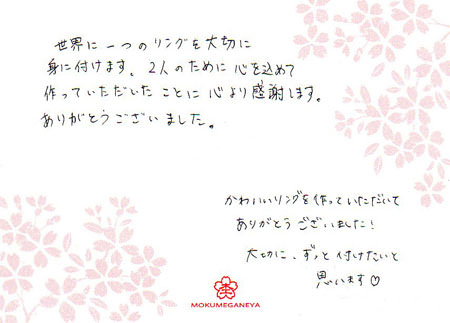 世界に一つのリングを大切に
身に付けます。2人のために心を込めて
作っていただいたことに心より感謝します。
ありがとうございました。
かわいいリングを作っていただいて
ありがとうございました!
大切に、ずっと付けたいと
思います♡
MOKUMEGANEYA